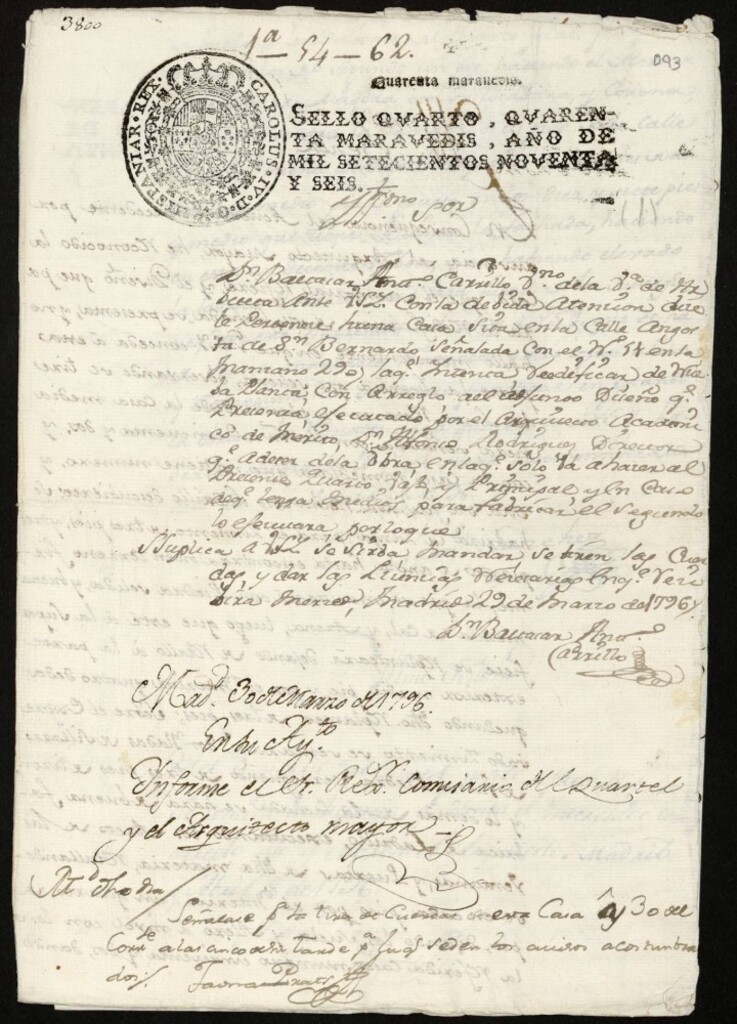 3800
1ª - 54 - 62.
093
Quarenta maravedis.
CAROLUS · IV · D · G · HISPANIAR · REX ·
SELLO QVARTO, QVAREN-
TA MARAVEDIS, AÑO DE
MIL SETECIENTOS NOVENTA
Y SEIS.
Dn Baltasar Anto Carrillo Vº de la Vª de
Ante VSY. Con la devida Atencion
le Pertenece huna Casa Sita en la Calle Angos
ta de Sn Bernardo Señalada Con el Nº 54 en la
Manzana 290, laqe Intenta Reedificar de Nue
ba Planta, Con Arreglo al Diseño qe
Presenta efecutado por el Arquitecto Academi
co de Merito, Dn Alfonso Rodriguez Director
qe A de ser dela Obra en laqe Solo Va a hacer al
Presente Quarto Vajo y Prinzipal y En Caso
deqe tenga medios para fabricar el Segundo
lo efecutara por loque
Suplica A VSY se sirba mandar se tiren las Cuer
das, y dar las Lizencias Nezesarias Enqe Reci
vira Merced, Madrid 29 de Marzo de 1796,
Dn Baltasar Anto
Carrillo
Madd 30 de Marzo de 1796.
En su Aytto
Informe el Sr. Rexor Comisario del Quartel
y el Arquitecto mayor
Señalase pa la tira de Cuerdas de esta Casa el dia 30 del
Corrte a las cinco de su tarde pa lo qe se den los avisos acostumbra
dos.